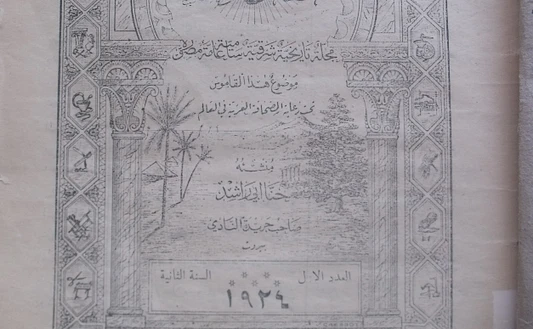 مجلة تاريخية شرقية سامية عامة مصطفى
موضوع هذا القاموس
تحت رعاية الصحافة العربية في العالم
منشئه
حنا ابي راشد
صاحب جريدة النادي
بيروت
العدد الاول السنة الثانية
١٩٢٤